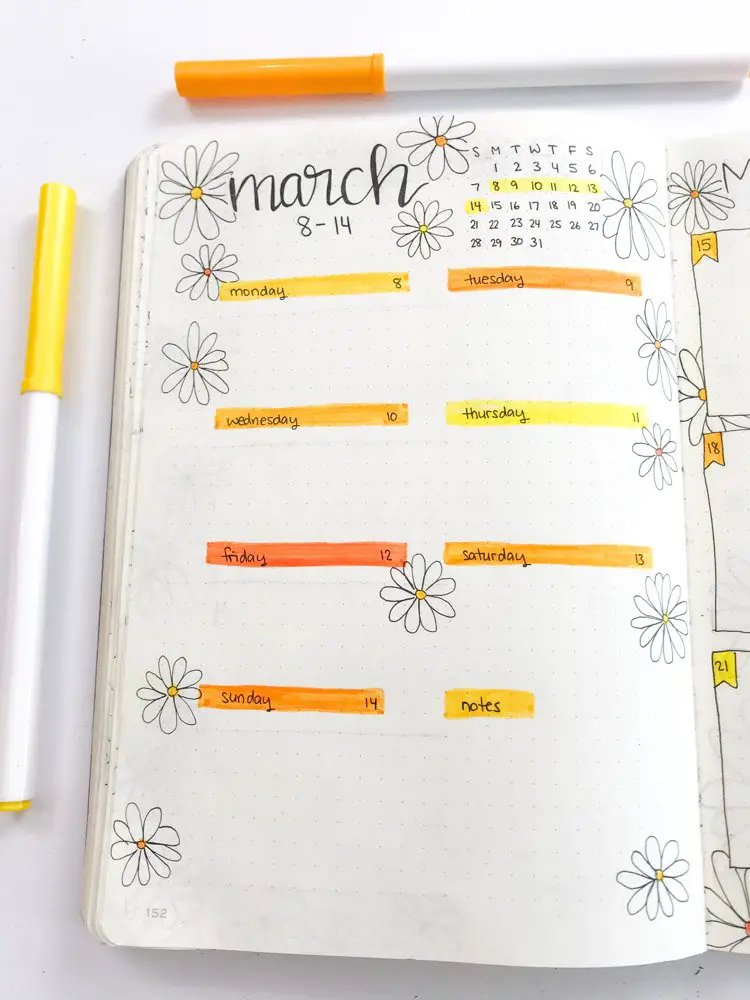 march
8-14
S M T W T F S
1 2 3 4 5 6
7 8 9 10 11 12 13
14 15 16 17 18 19 20
21 22 23 24 25 26 27
28 29 30 31
monday 8
tuesday 9
wednesday 10
thursday 11
friday 12
saturday 13
sunday 14
notes
152
M
15
18
21